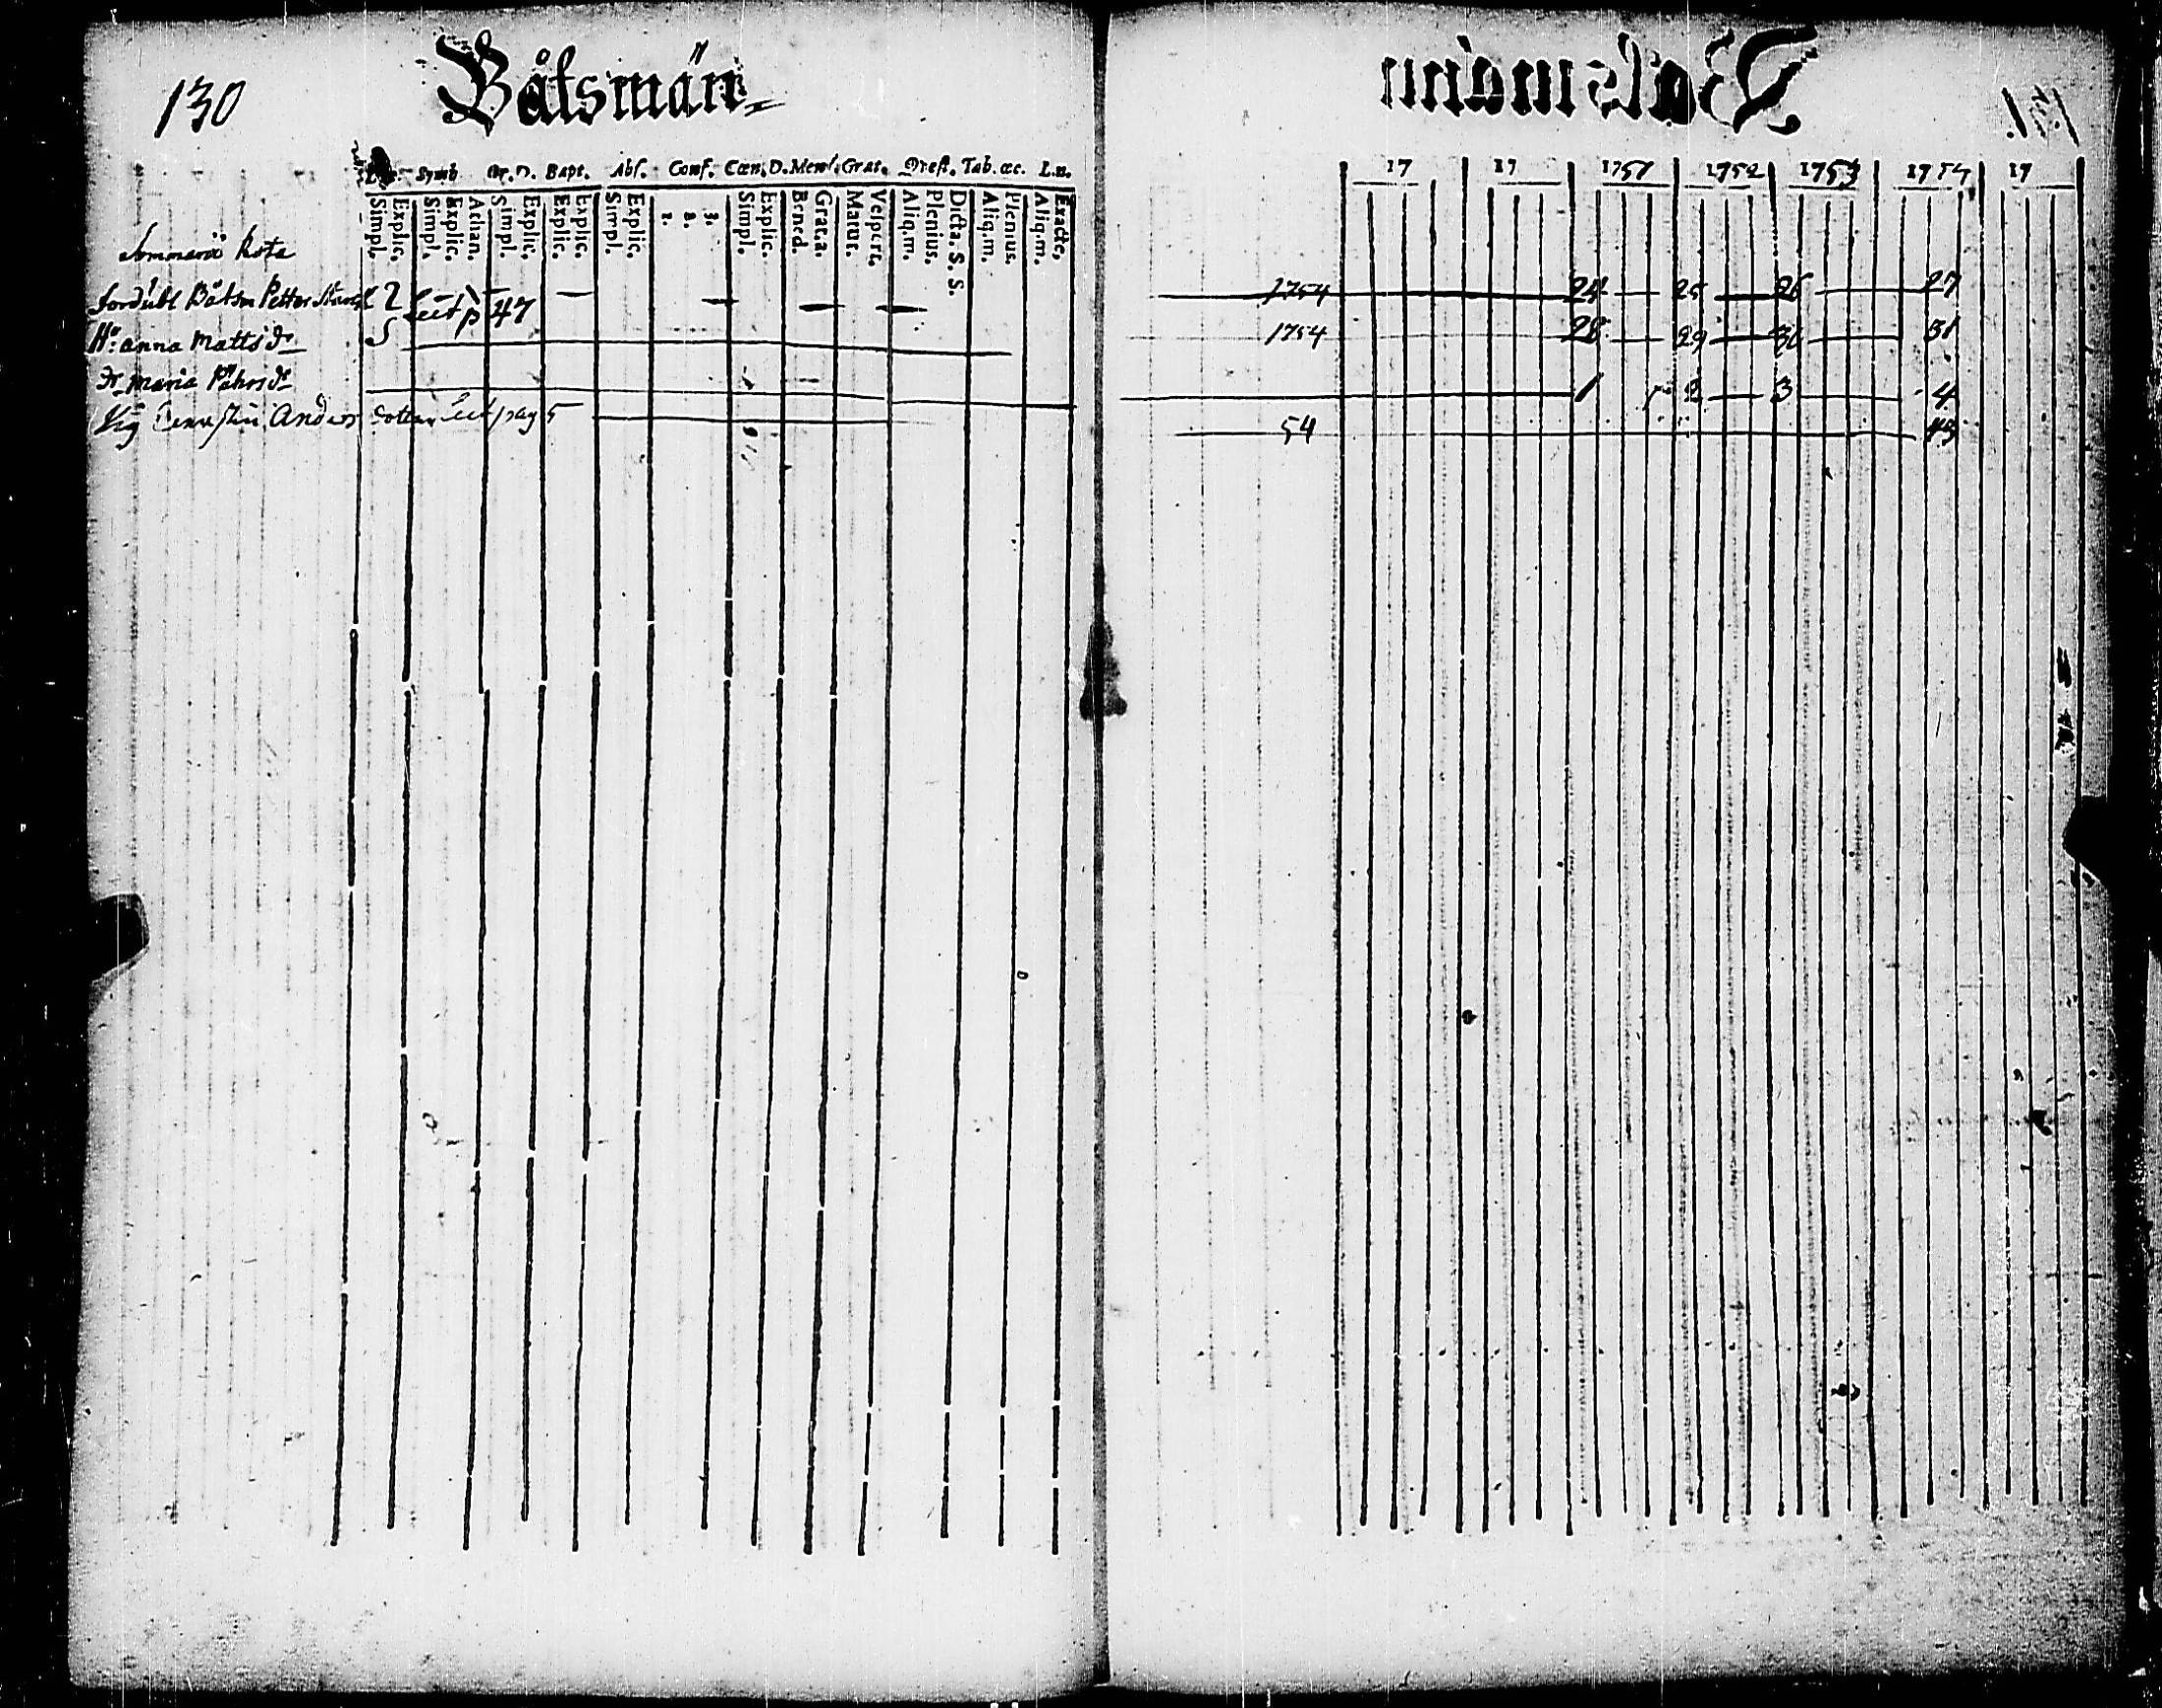 130
Båtsmän
Symb. Or. D. Bapt. Abs. Conf. Cœn. D. Mens. Grat. Præst. Tab. œc. L. n.
Simpl. Explic. Simpl. Explic. Athan. Simpl. Explic. Explic. Explic. Simpl. Explic. 1. 2. 3. Simpl. Explic. Bened. Grat.a. Matut. Vespert. Aliq.m. Plenius. Dicta. S. S. Aliq.m. Plenius. Aliq.m. Exacte.
rota
Båtsm Petter 2 47
H: anna Matts dr
dr maria
Anders pag 5
131
17 17 1751 1752 1753 1754 17
1754 24 25 26 27
1754 28 29 30 31
1 2 3 4
54 43